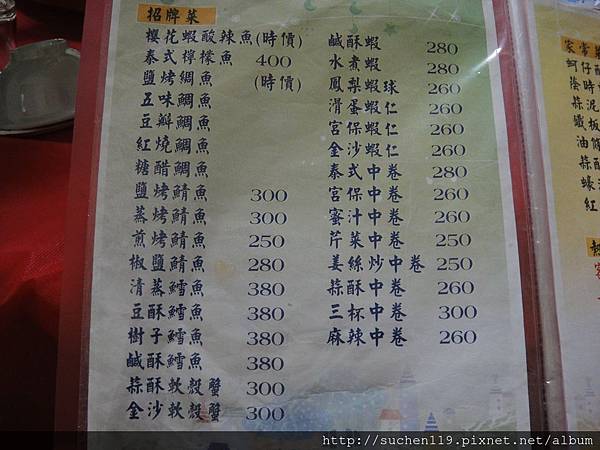 招牌菜
櫻花蝦酸辣魚(時價)
泰式檸檬魚 400
鹽烤鯛魚 (時價)
五味鯛魚
豆瓣鯛魚
紅燒鯛魚
糖醋鯛魚
鹽烤鯖魚 300
蒸烤鯖魚 300
煎烤鯖魚 250
椒鹽鯖魚 280
清蒸鱈魚 380
豆酥鱈魚 380
樹子鱈魚 380
鹹酥鱈魚 380
蒜酥軟殼蟹 300
金沙軟殼蟹 300
鹹酥蝦 280
水煮蝦 280
鳳梨蝦球 260
滑蛋蝦仁 260
宮保蝦仁 260
金沙蝦仁 260
泰式中卷 280
宮保中卷 260
蜜汁中卷 260
芹菜中卷 250
姜絲炒中卷 250
蒜酥中卷 260
三杯中卷 300
麻辣中卷 260
家常
蚵仔
蔭時
蒜泥
鐵板
油條
蒜酥
蠔
紅
http://suchen119.pixnet.net/album